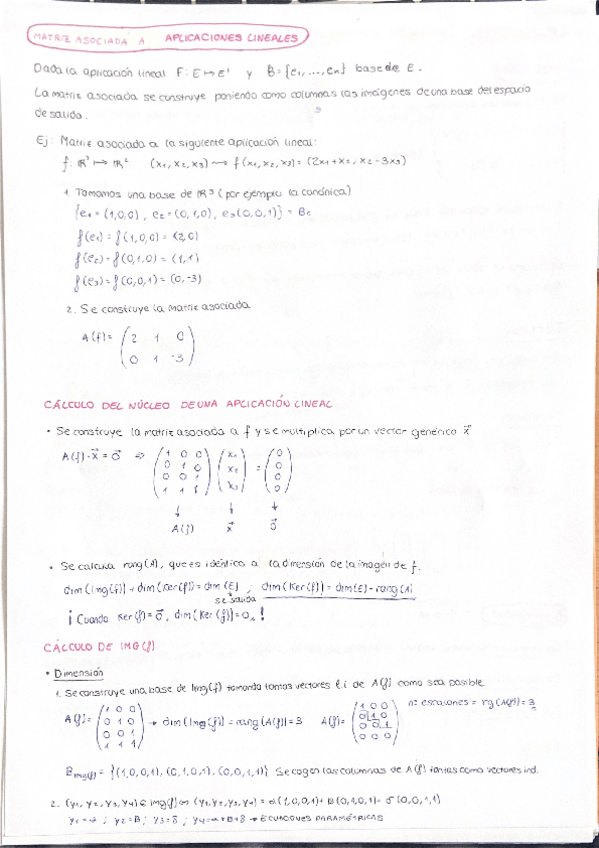 MATRIZ ASOCIADA A APLICACIONES LINEALES
Dada la aplicación lineal F: E ↦ E' y B = {e₁, ..., en} base de E.
La matriz asociada se construye poniendo como columnas las imágenes de una base del espacio
de salida.
Ej: Matriz asociada a la siguiente aplicación lineal:
f: ℝ³ ↦ ℝ² (x₁, x₂, x₃) ⟿ f(x₁, x₂, x₃) = (2x₁+x₂, x₂-3x₃)
1. Tomamos una base de ℝ³ (por ejemplo la canónica)
{e₁ = (1,0,0), e₂ = (0,1,0), e₃(0,0,1)} = Bc
f(e₁) = f(1,0,0) = (2,0)
f(e₂) = f(0,1,0) = (1,1)
f(e₃) = f(0,0,1) = (0,-3)
2. Se construye la matriz asociada
A(f) = (2 1 0
0 1 -3)
CÁLCULO DEL NÚCLEO DE UNA APLICACIÓN LINEAL
• Se construye la matriz asociada a f y se multiplica por un vector genérico x⃗
A(f)·x⃗ = 0⃗ ⇒ (1 0 0 (x₁ (0
0 1 0 x₂ = 0
0 0 1 x₃) 0
1 1 1) 0)
↓ ↓ ↓
A(f) x⃗ 0⃗
• Se calcula rang(A), que es idéntico a la dimensión de la imagen de f.
dim(Img(f)) + dim(Ker(f)) = dim(E) ; dim(Ker(f)) = dim(E) - rang(A)
se salida
¡Cuando Ker(f) = 0⃗, dim(Ker(f)) = 0!
CÁLCULO DE IMG(f)
• Dimensión
1. Se construye una base de Img(f) tomando tantos vectores l.i de A(f) como sea posible
A(f) = (1 0 0 → dim(Img(f)) = rang(A(f)) = 3 A(f) = (1 0 0 nº escalones = rg(A(f)) = 3
0 1 0 0 1 0
0 0 1 0 0 1
1 1 1) 0 0 0)
B img(f) = {(1,0,0,1), (0,1,0,1), (0,0,1,1)} Se cogen las columnas de A(f) tantas como vectores ind.
2. (y₁, y₂, y₃, y₄) ∈ img(f) ⇔ (y₁, y₂, y₃, y₄) = α(1,0,0,1) + B(0,1,0,1) + δ(0,0,1,1)
y₁ = α ; y₂ = B ; y₃ = δ ; y₄ = α + B + δ → ECUACIONES PARAMÉTRICAS